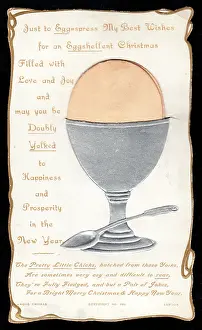 Just to Eggspress My Best Wishes
for an Eggshellent Christmas
Filled with
Love and Joy
and
may you be
Doubly
Yolked
to
Happiness
and
Prosperity
in the
New Year
The Pretty Little Chicks, hatched from these Yolks,
Are sometimes very shy and difficult to coax,
They're Fully Fledged, and but a Pair of Jokes,
For a Bright Merry Christmas & Happy New Year.